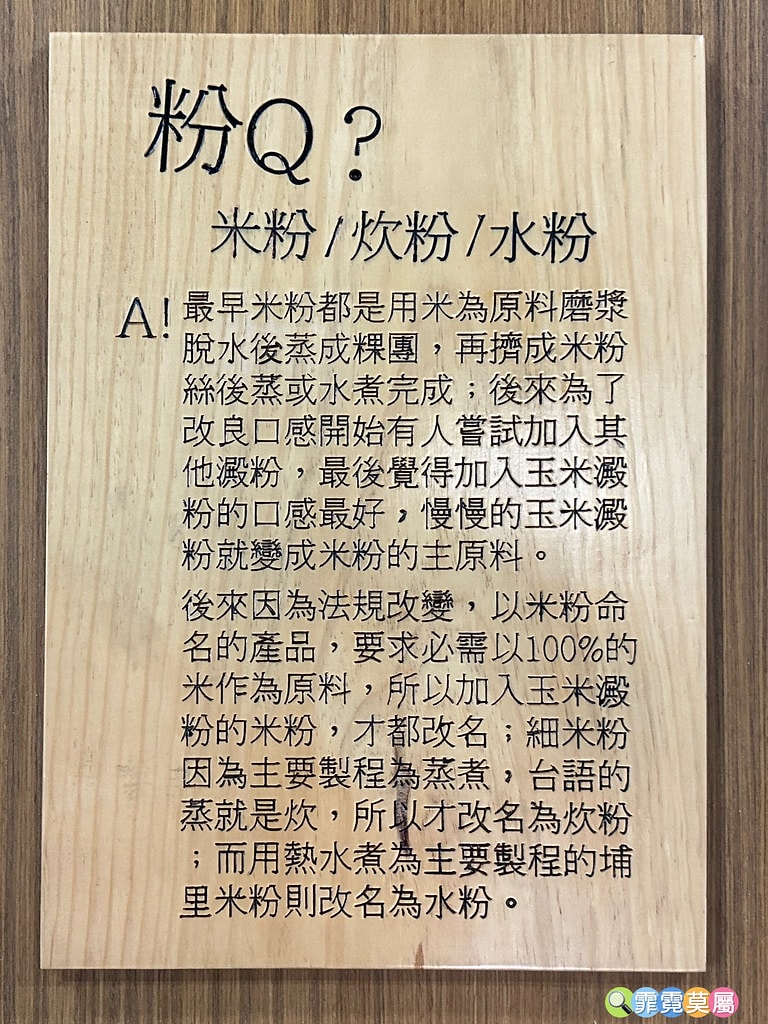 粉Q？
米粉/炊粉/水粉
A! 最早米粉都是用米為原料磨漿
脫水後蒸成粿團，再擠成米粉
絲後蒸或水煮完成；後來為了
改良口感開始有人嘗試加入其
他澱粉，最後覺得加入玉米澱
粉的口感最好，慢慢的玉米澱
粉就變成米粉的主原料。
後來因為法規改變，以米粉命
名的產品，要求必需以100%的
米作為原料，所以加入玉米澱
粉的米粉，才都改名；細米粉
因為主要製程為蒸煮，台語的
蒸就是炊，所以才改名為炊粉
；而用熱水煮為主要製程的埔
里米粉則改名為水粉。
霏霓莫屬